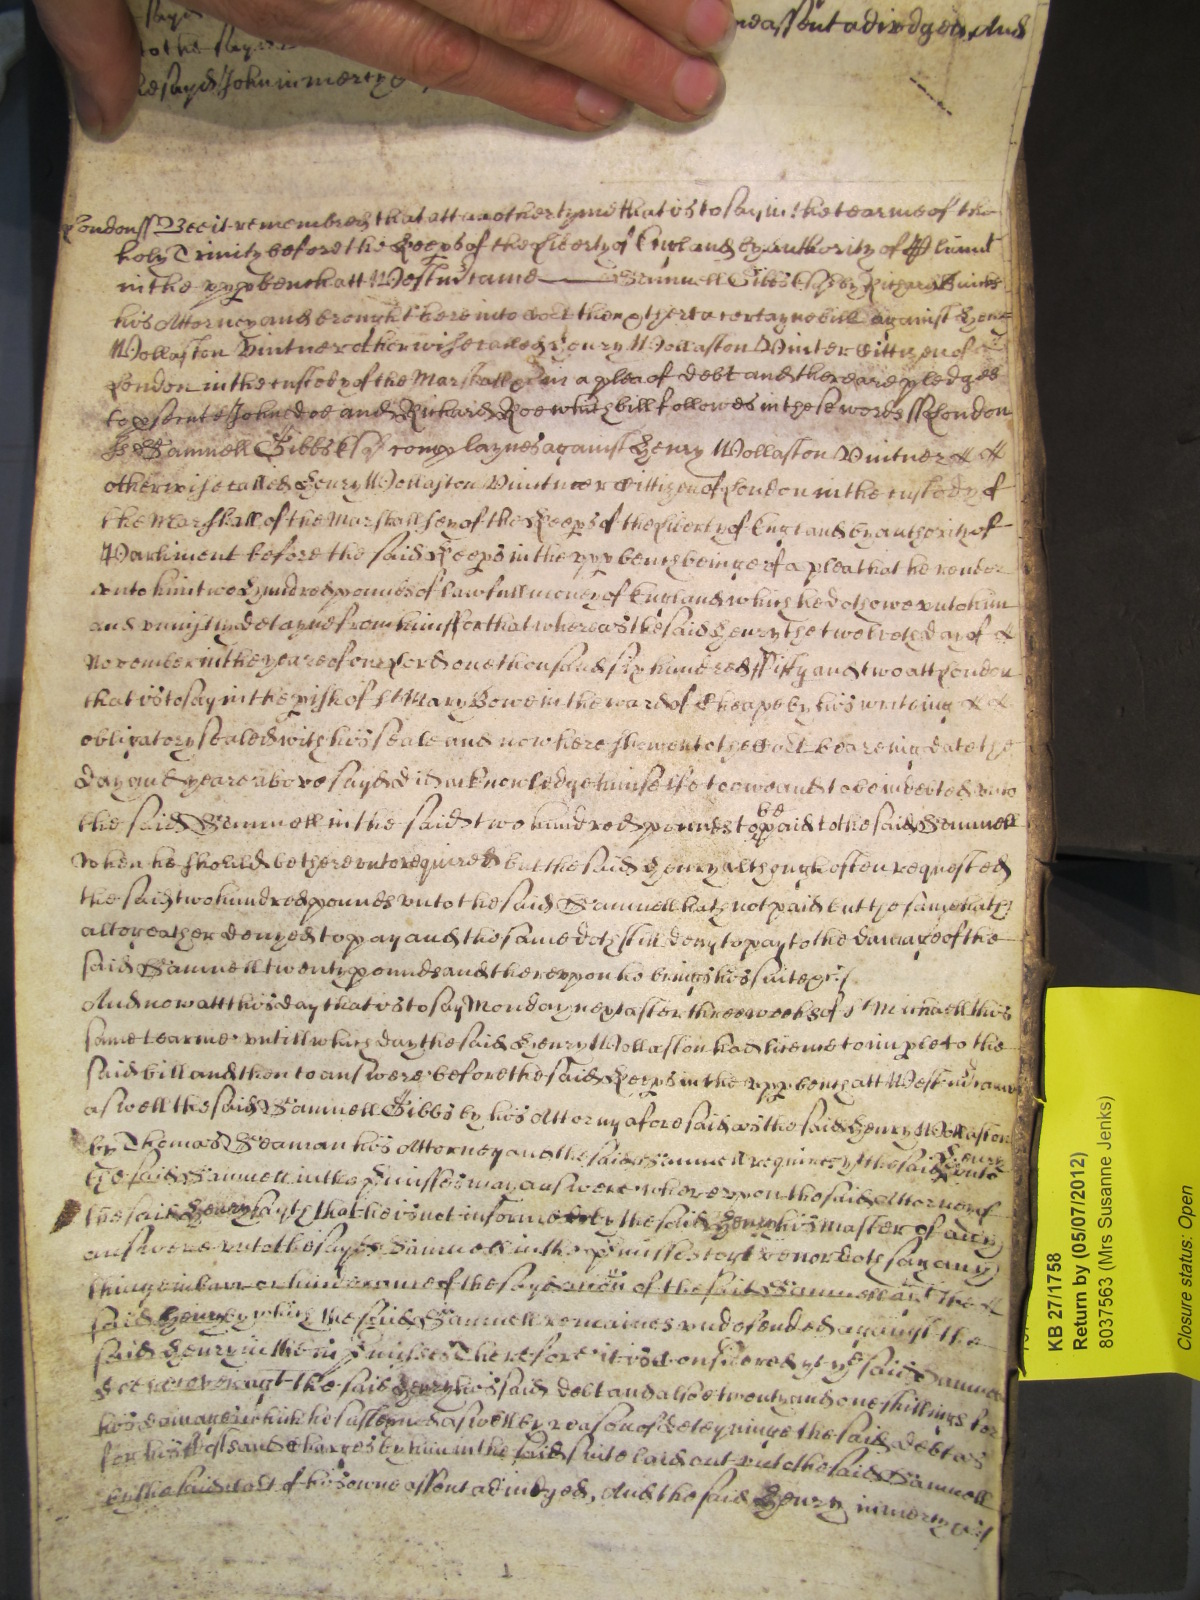 sayd
meassent adiudged, And
to the sayd
he sayd John in mercy &
London ss Bee it remembred that att another tyme that is to say in the tearme of the
holy Trinity before the Keeps of the liberty of England by authority of Parliamt
in the upp bench att Westmr came Samuell Gibbs Esqr by Richard
his Attorney and brought here into Court then & there a certayne bill against Henry
Wollaston Vintner otherwise called Henry Wollaston Vinter Cittizen of &
London in the custody of the Marshall &c in a plea of debt and there are pledges
to psecute John doe and Richard Roe which bill followes in these words ss London
ss Samuell Gibbs Esqr complaynes against Henry Wollaston Vintner & &
otherwise called Henry Wollaston Vintner Cittizen of London in the custody of
the Marshall of the Marshallsey of the Keeps of the liberty of England by authority of
Parliment before the said Keeps in the upp bench beinge of a plea that he render
unto him two hundred pounds of lawfull money of England which he doth owe unto him
and uniustly detayne from him ffor that whereas the said Henry the twelveth day of &
November in the yeare of our Lord one thousand six hundred ffifty and two att London
that is to say in the pish of St Mary Bowe in the ward of Cheape by his writeing & &
obligatory sealed with his seale and now here shewen to the Court beareing date the
day and yeare above sayd did acknowledge himselfe to owe and to be indebted unto
the said Samuell in the said two hundred pounds to be paid to the said Samuell
when he should be thereunto required but the said Henry although often requested
the said two hundred pounds unto the said Samuell hath not paid but the same hath
altogeather denyed to pay and the same doth still deny to pay to the damage of the
said Samuell twenty pounds and thereupon he brings his suite &c
And now att this day that is to say Monday next after three weeks of St Michaell this
same tearme untill which day the said Henry Wollaston had licence to imple to the
said bill and then to answere before the said Keeps in the upp bench att Westmr came
aswell the said Samuell Gibbs by his Attorny aforesaid as the said Henry Wollaston
by Thomas Seaman his Attorney and the said Samuell requires yt the said Henry unto
the said Samuell in the pmisses may answere whereupon the said Attorney of
the said Henry sayth that he is not informed by the said Henry his master of any
answere unto the sayd Samuell in the pmisses to give nor doth say any
thinge in barr or hinderance of the sayd accon of the said Samuell agt the &
said Henry by which the said Samuell remaines undefended against the
said Henry in the pmisses Therefore it is considered yt ye said Samuell
doe recover agt the said Henry his said debt and alsoe twenty and one shillings for
his damages which he susteyned aswell by reason of deteyninge the said debt as
for his Costs and Charges by him in the said suite laid out unto the said Samuell
by the said Court of his owne assent adiudged, And the said Henry in mercy &c
KB 27/1758
Return by (05/07/2012)
8037563 (Mrs Susanne Jenks)
Closure status: Open